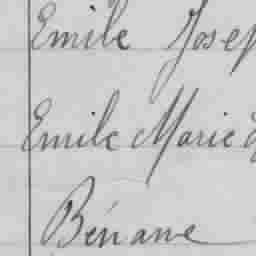 Emile Josep
Emile Marie
Bénane